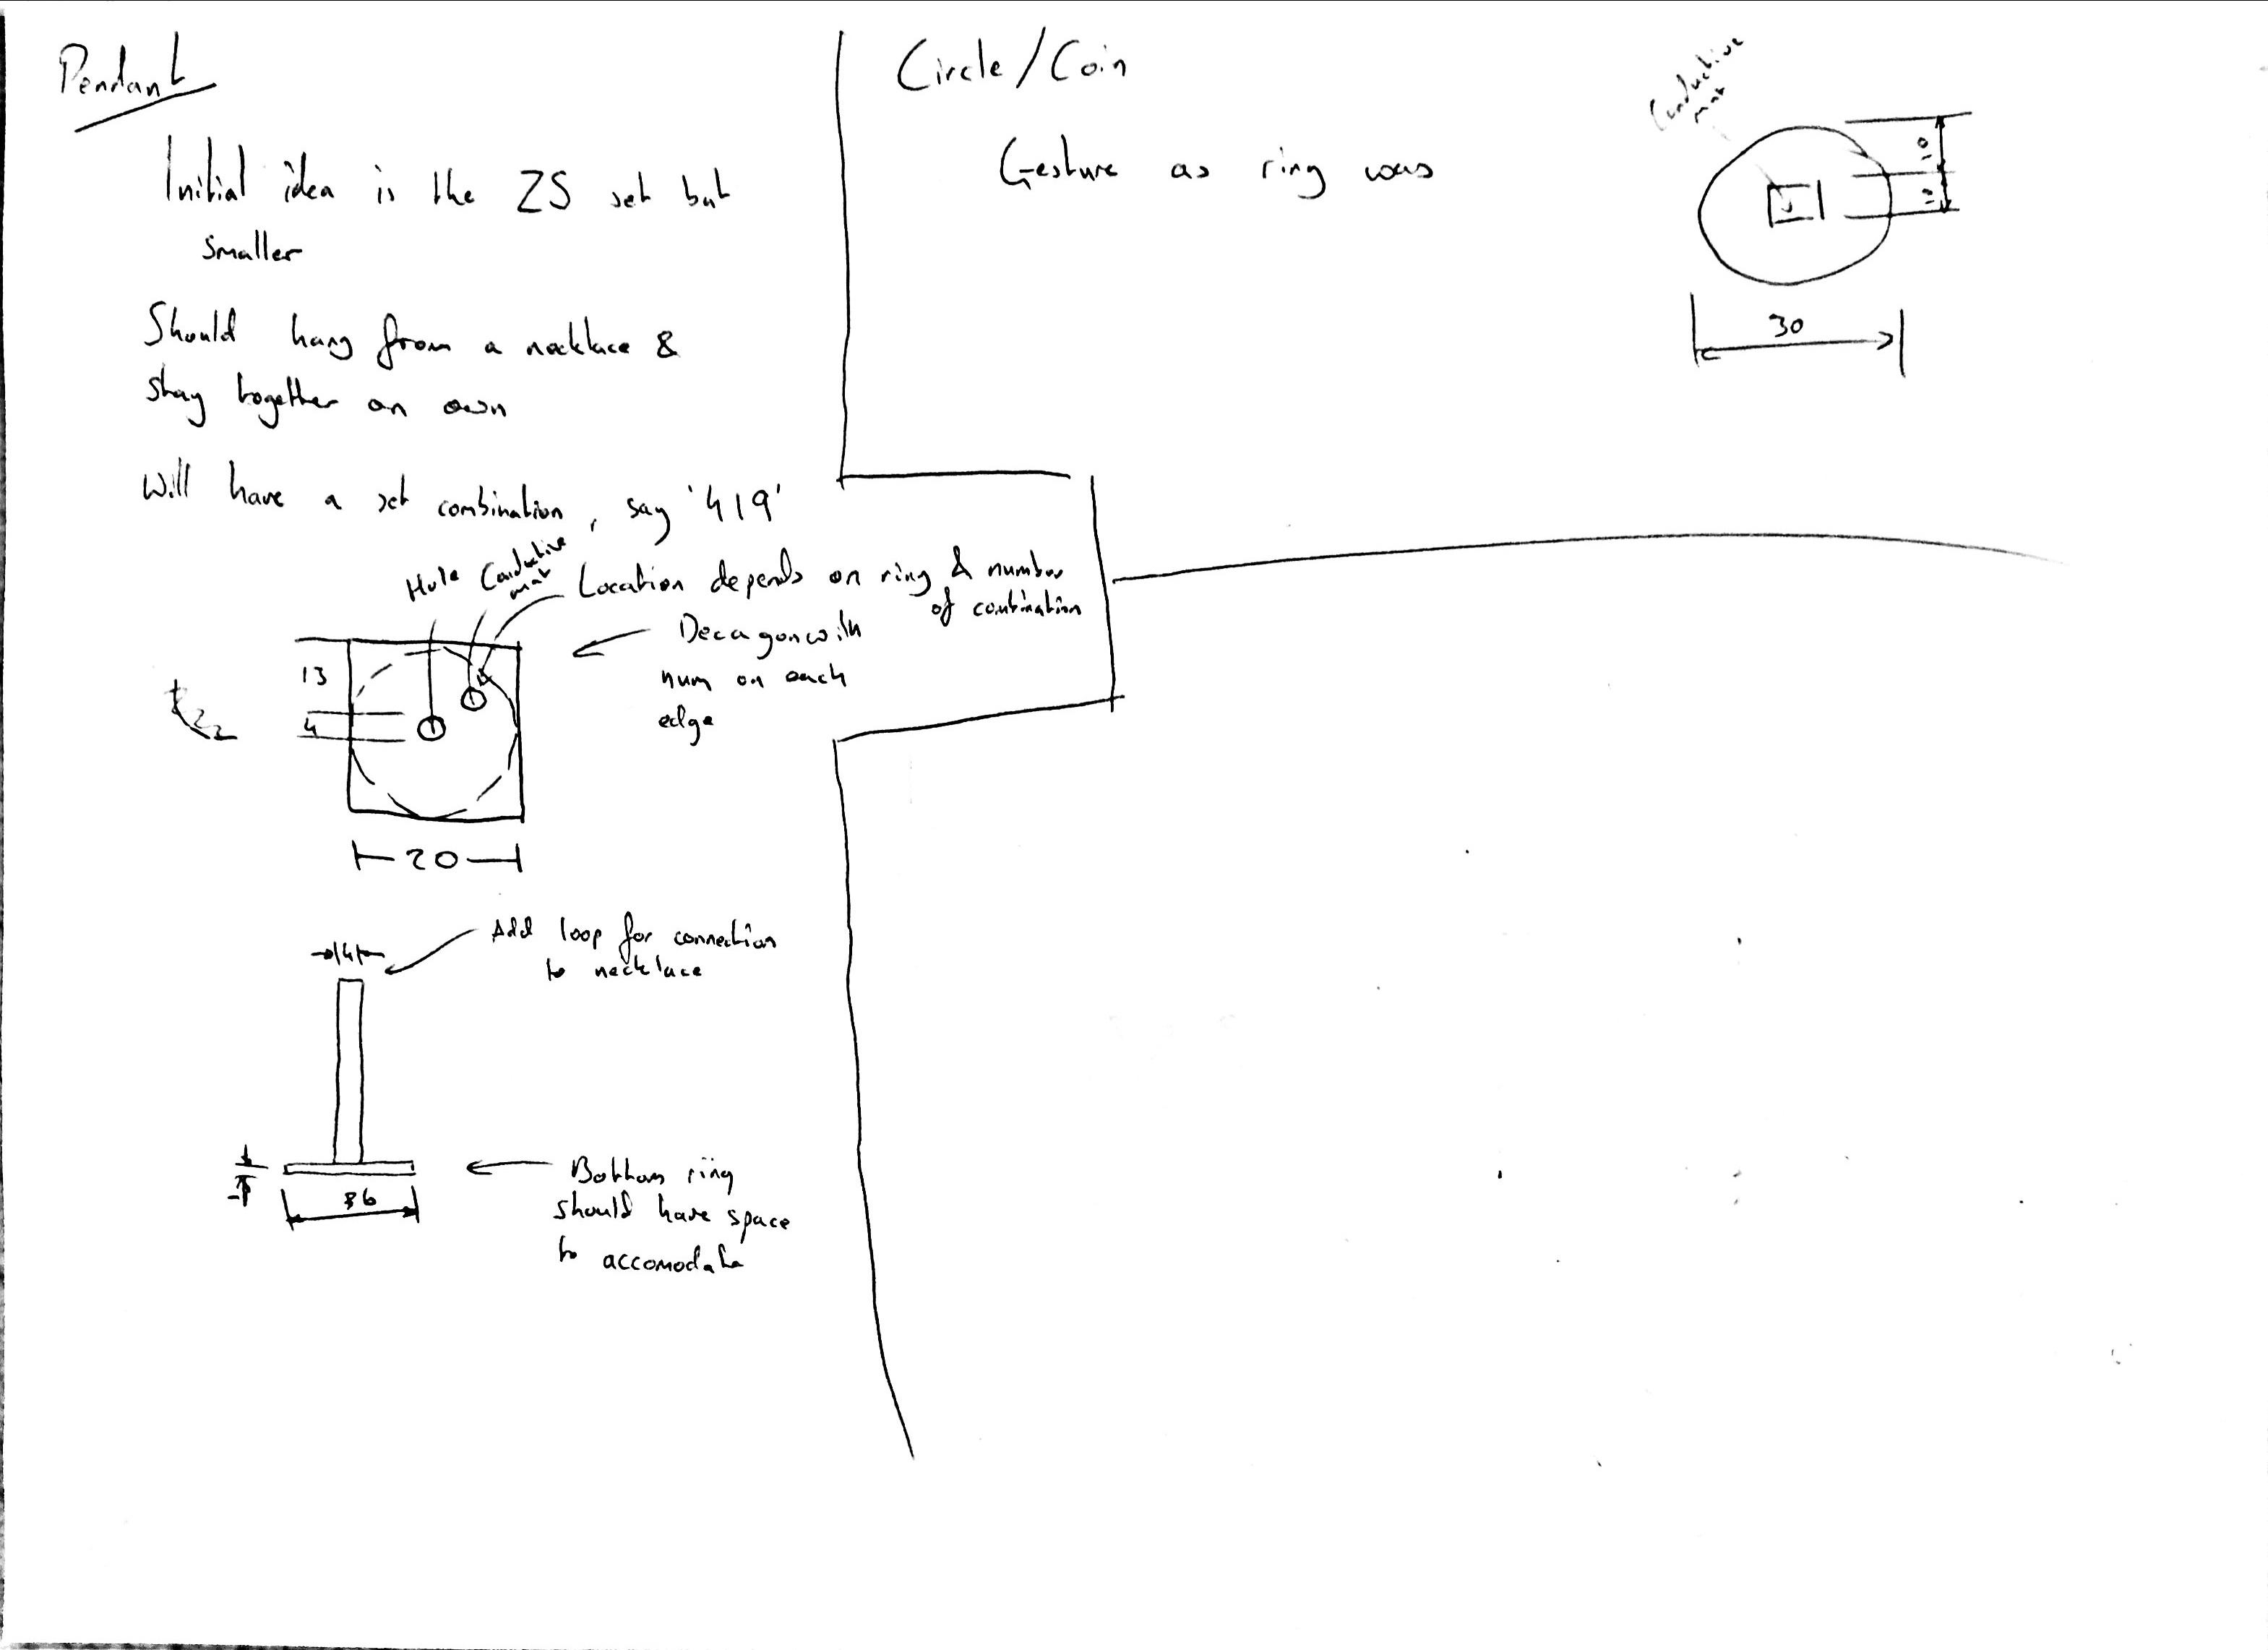 Pendant
Initial idea is the ZS set but
smaller
Should hang from a necklace &
stay together on own
Will have a set combination, say '419'
Hole Conductive
mat
Location depends on ring & number
of combination
Decagon with
num on each
edge
13
4
20
Add loop for connection
to necklace
4
Bottom ring
should have space
to accomodate
Circle/Coin
Gesture as ring was
Conductive
mat
10
30